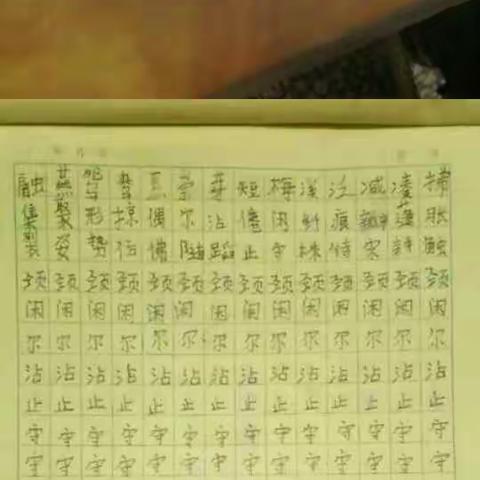 融 燕 鸳 莺 瓦 崇 芽 短 梅 溪 泛 减 凌 拂
集 聚 形 掠 偶 尔 沾 倦 闲 纤 痕 蓬 胀
裂 姿 势 伝 佛 随 蹈 止 守 株 待 宋 辞 触
颈 颈 颈 颈 颈 颈 颈 颈 颈 颈 颈 颈 颈 颈
闲 闲 闲 闲 闲 闲 闲 闲 闲 闲 闲 闲 闲 闲
尔 尔 尔 尔 尔 尔 尔 尔 尔 尔 尔 尔 尔 尔
沾 沾 沾 沾 沾 沾 沾 沾 沾 沾 沾 沾 沾 沾
止 止 止 止 止 止 止 止 止 止 止 止 止 止
守 守 守 守 守 守 守 守 守 守 守 守 守 守
守 守 守 守 守 守 守 守 守 守 守 守 守 守